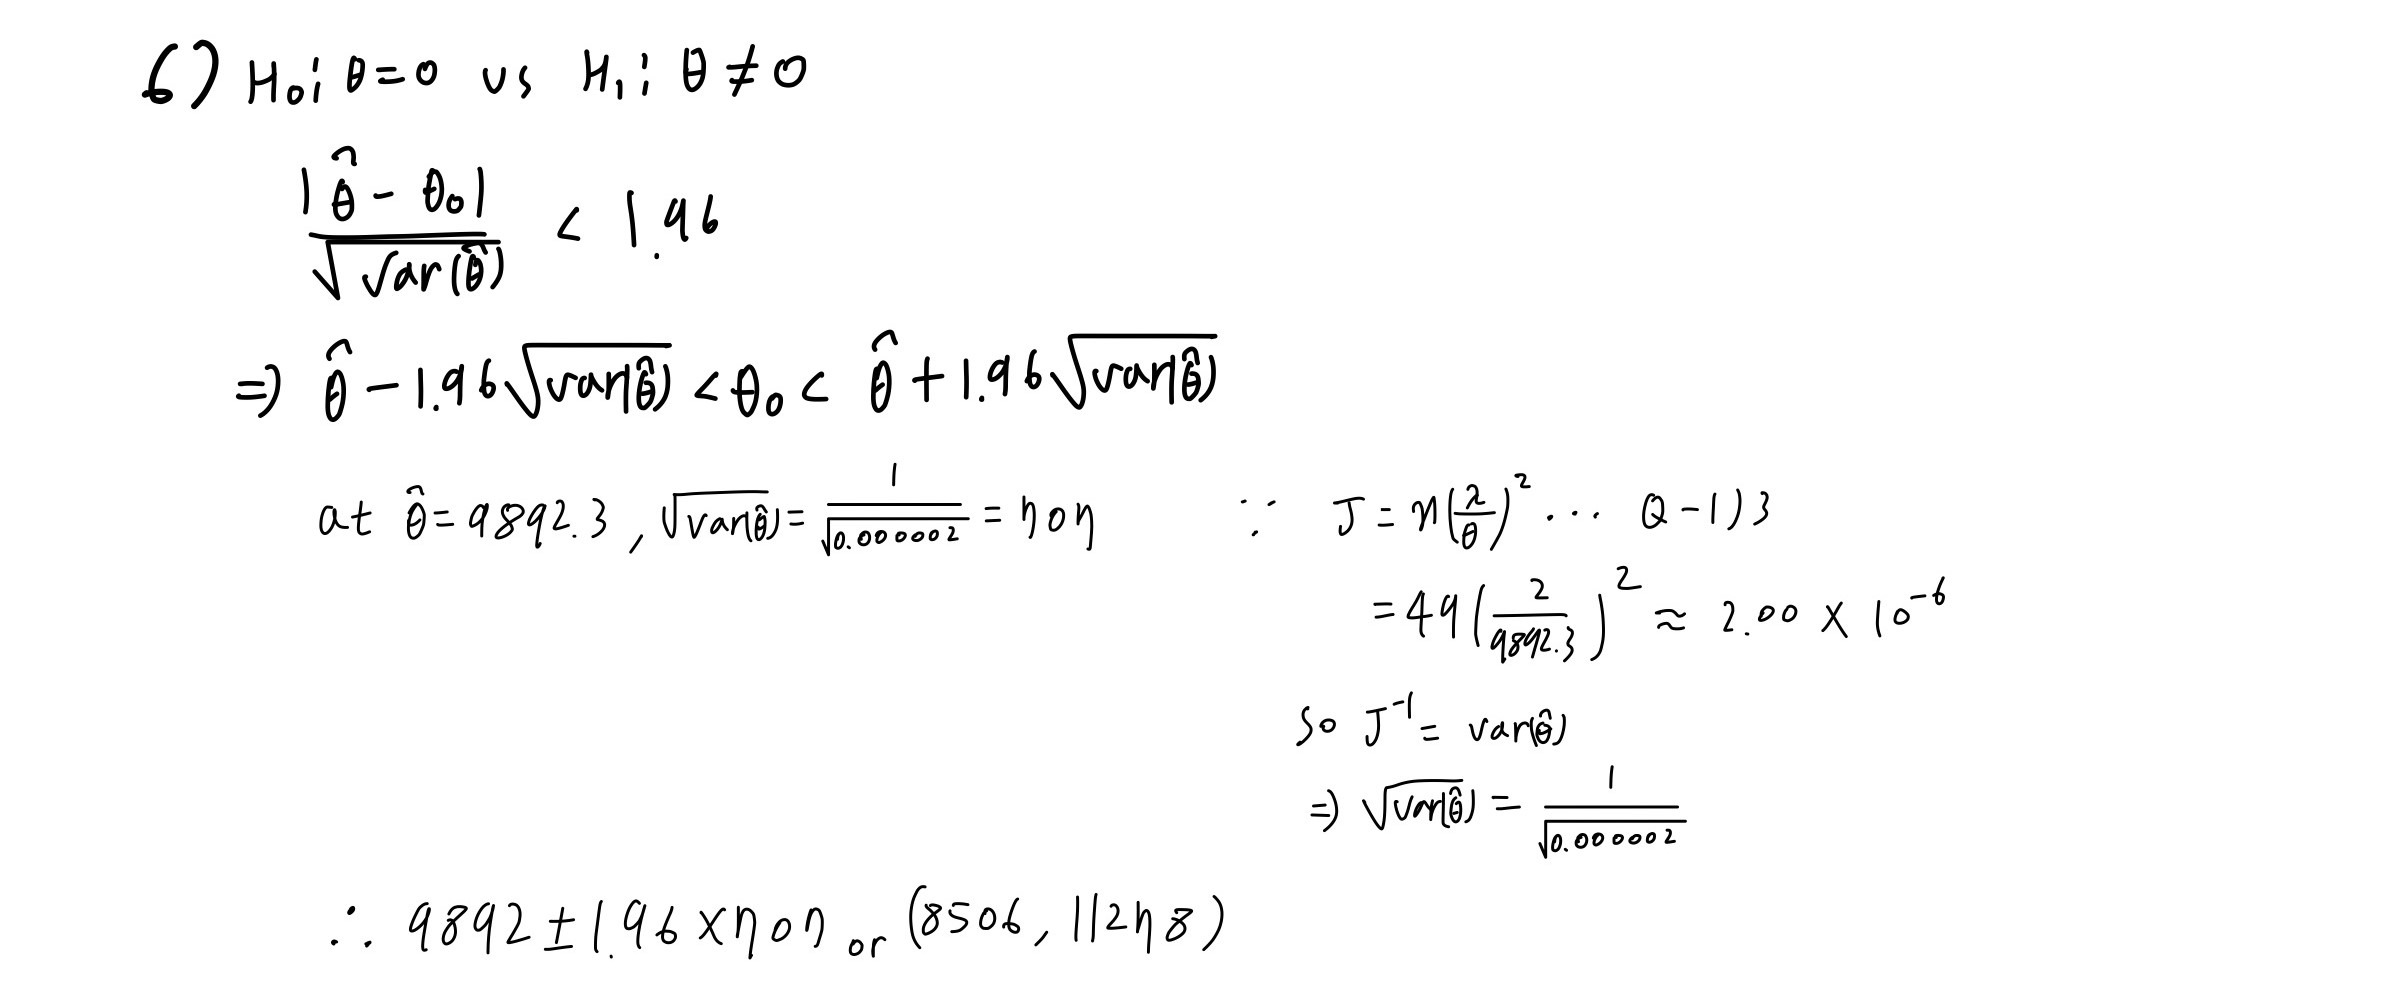 6) H₀: θ=0 vs H₁: θ≠0
|θ̂ - θ₀| / √var(θ̂) < 1.96
⇒) θ̂ - 1.96√var(θ̂) < θ₀ < θ̂ + 1.96√var(θ̂)
at θ̂ = 9892.3, √var(θ̂) = 1/√0.000002 = 707 ∵ J = n(λ/θ)² ... Q-1) 3
= 49(2/9892.3)² ≈ 2.00 × 10⁻⁶
so J⁻¹ = var(θ̂)
⇒) √var(θ̂) = 1/√0.000002
∴ 9892 ± 1.96 × 707 or (8506, 11278)